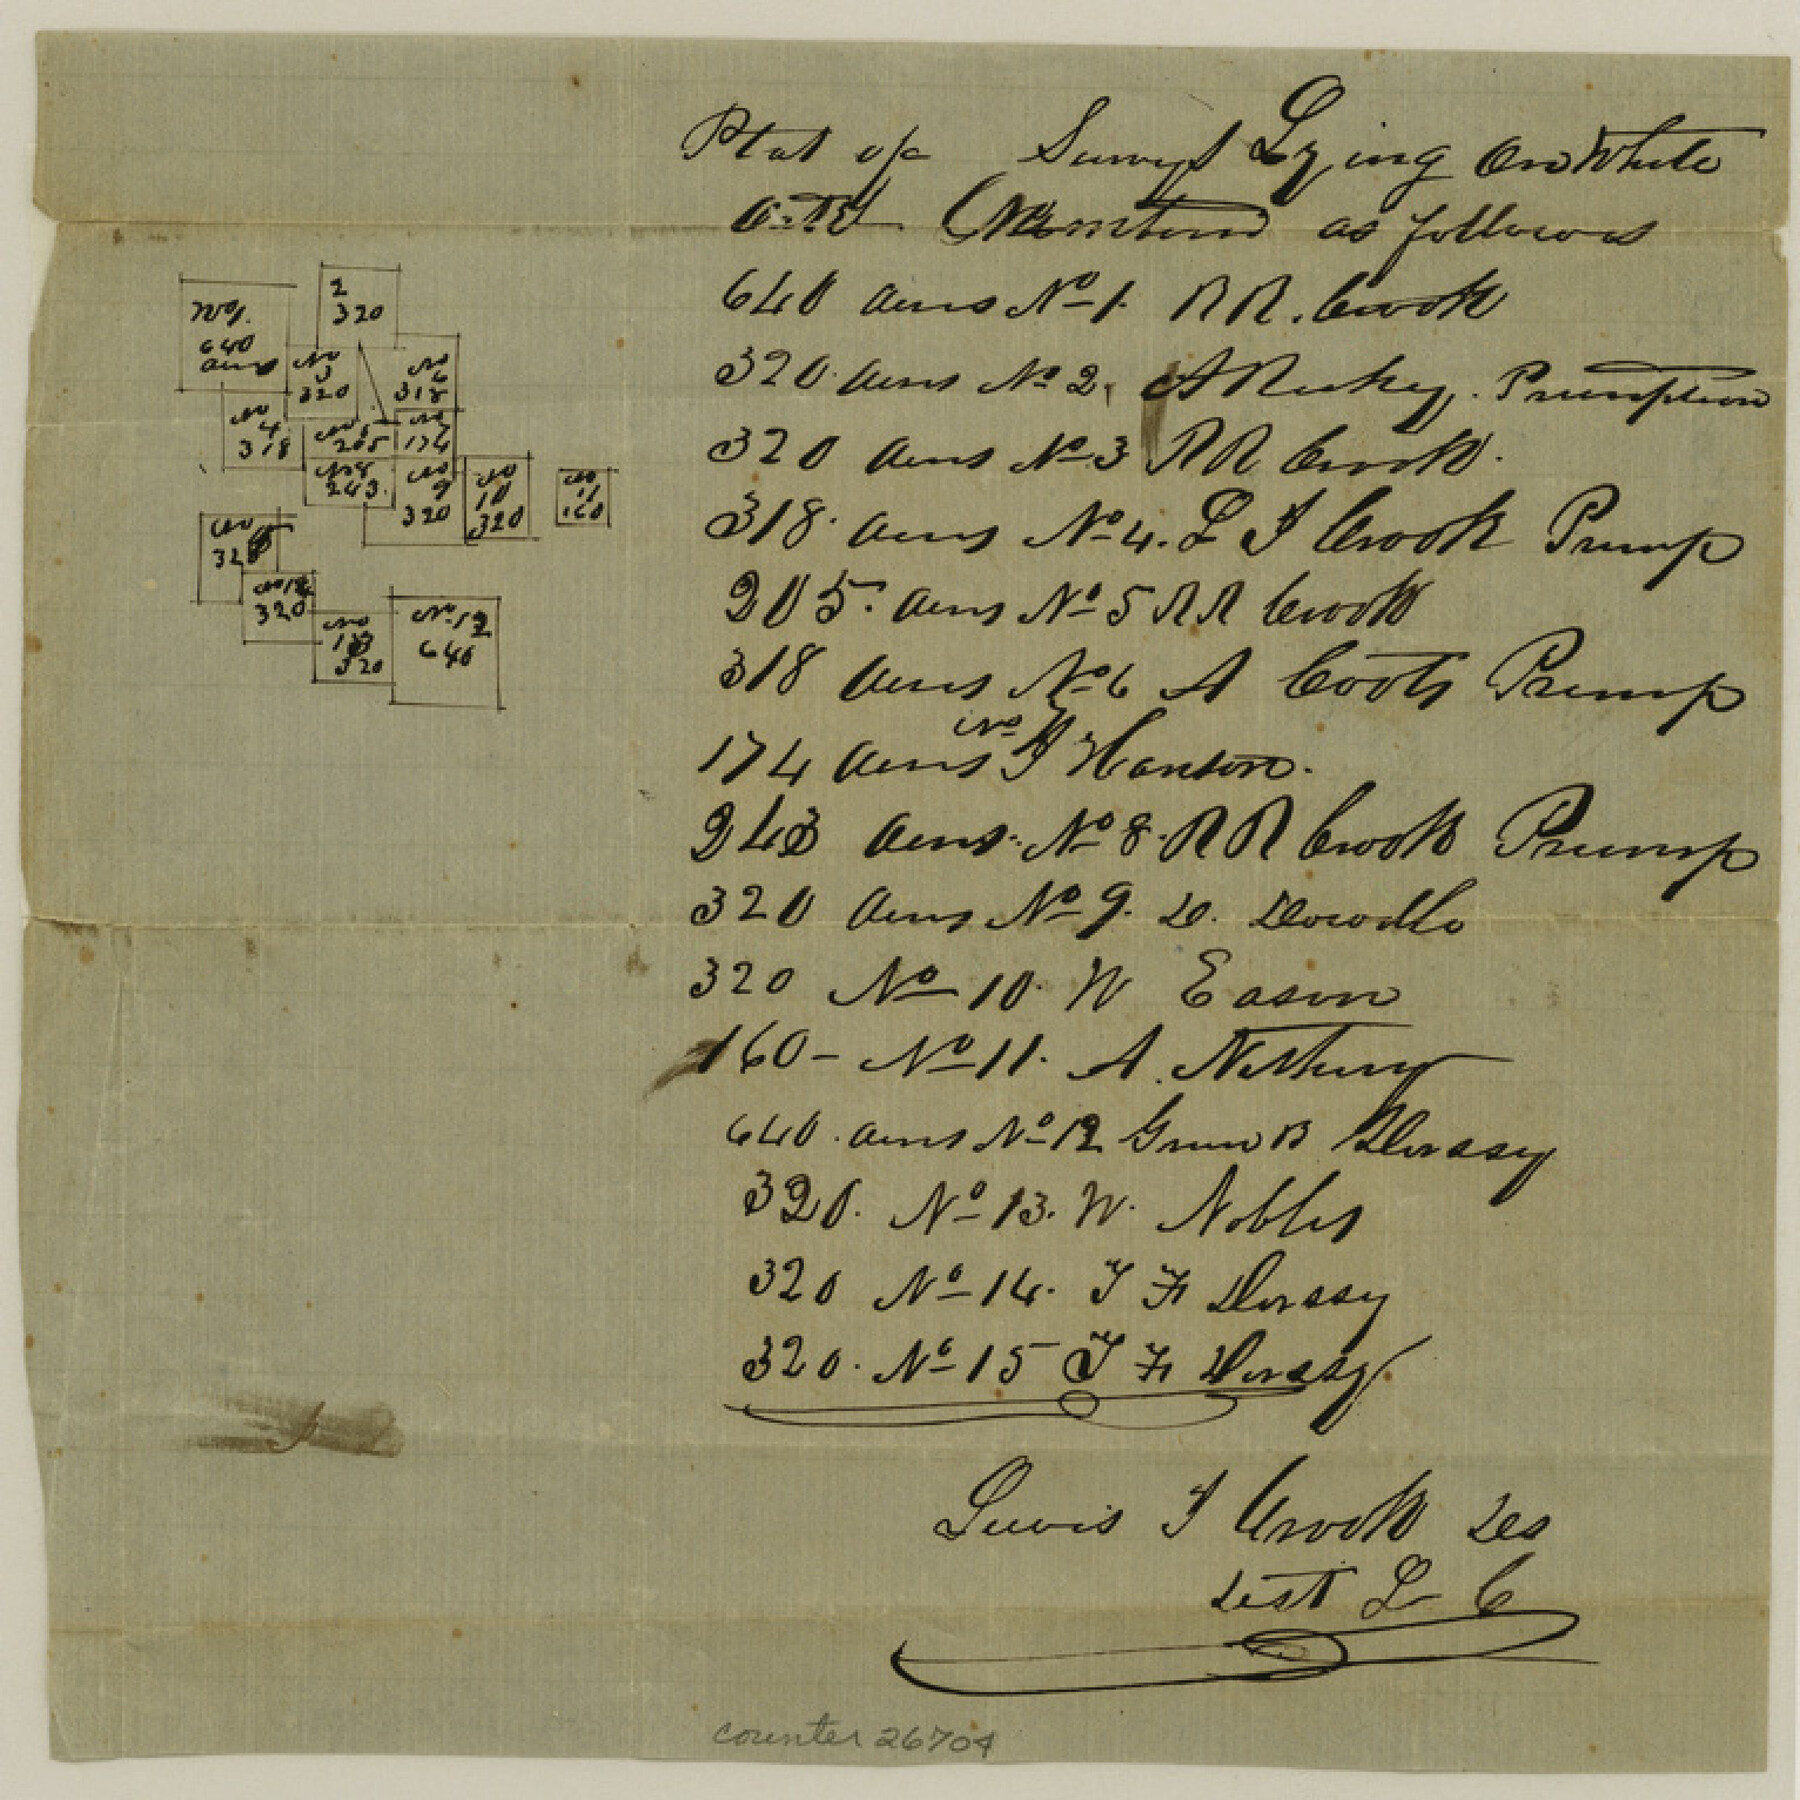 Plat of Surveys Lying on White
and as follows
640 acres No 1. RR. Crook
320 acres No 2. A Preemption
320 acres No 3 RR Crook.
318. acres No 4. L J Crook Preemp
205. acres No 5 RR Crook
318 acres No 6 A Coots Preemp
174 acres No J Hanson.
243 acres. No 8. RR Crook Preemp
320 acres No 9. D. Dowdle
320 No 10. W Eason
160- No 11. A.
640. acres No 12 Green B Dorssey
320. No 13. W. Nobles
320 No 14. J F Dorssey
320. No 15 J F Dorssey
Lewis J Crook Des
Dest L C
counter 26704
No 1.
640
acres
2
320
No
3
320
No
6
318
No
4
318
No 5
205
No
7
174
No 8
243.
No
9
320
No
10
320
No
11
160
No
320
No 14
320
No
13
320
No 12
640